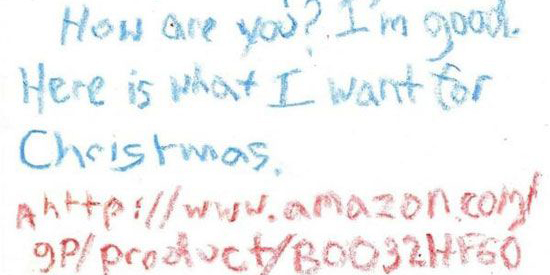 How are you? I'm good.
Here is what I want for
Christmas.
A http://www.amazon.com/
gp/product/B0032HF60